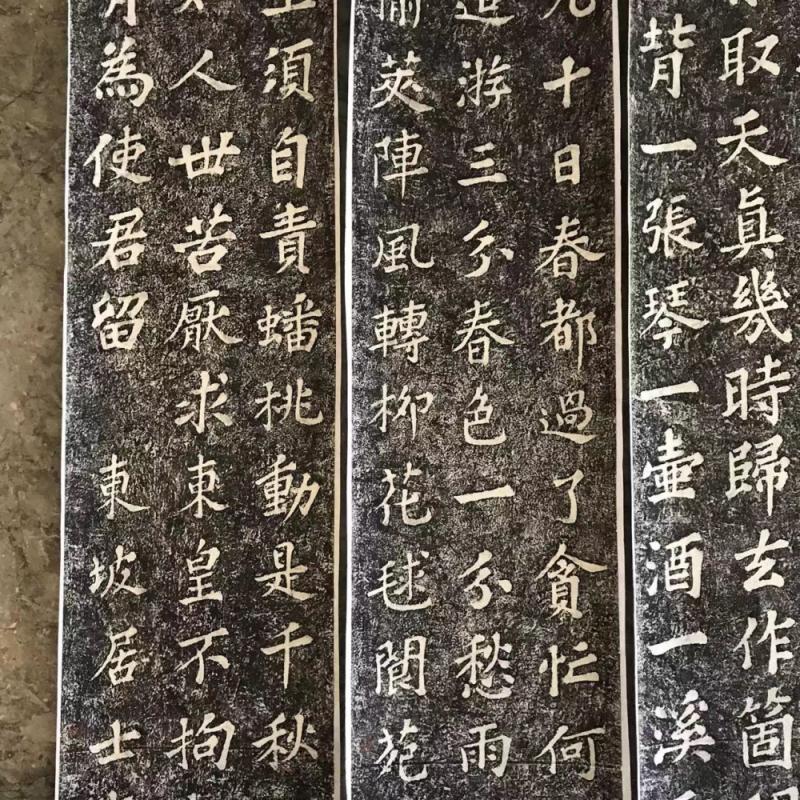 取天眞幾時歸去作箇
背一張琴一壷酒一溪
九十日春都過了貪忙何
追游三分春色一分愁雨
莢陣風轉柳花毬閬苑
須自責蟠桃動是千秋
人世苦厭求東皇不拘
為使君留 東坡居士